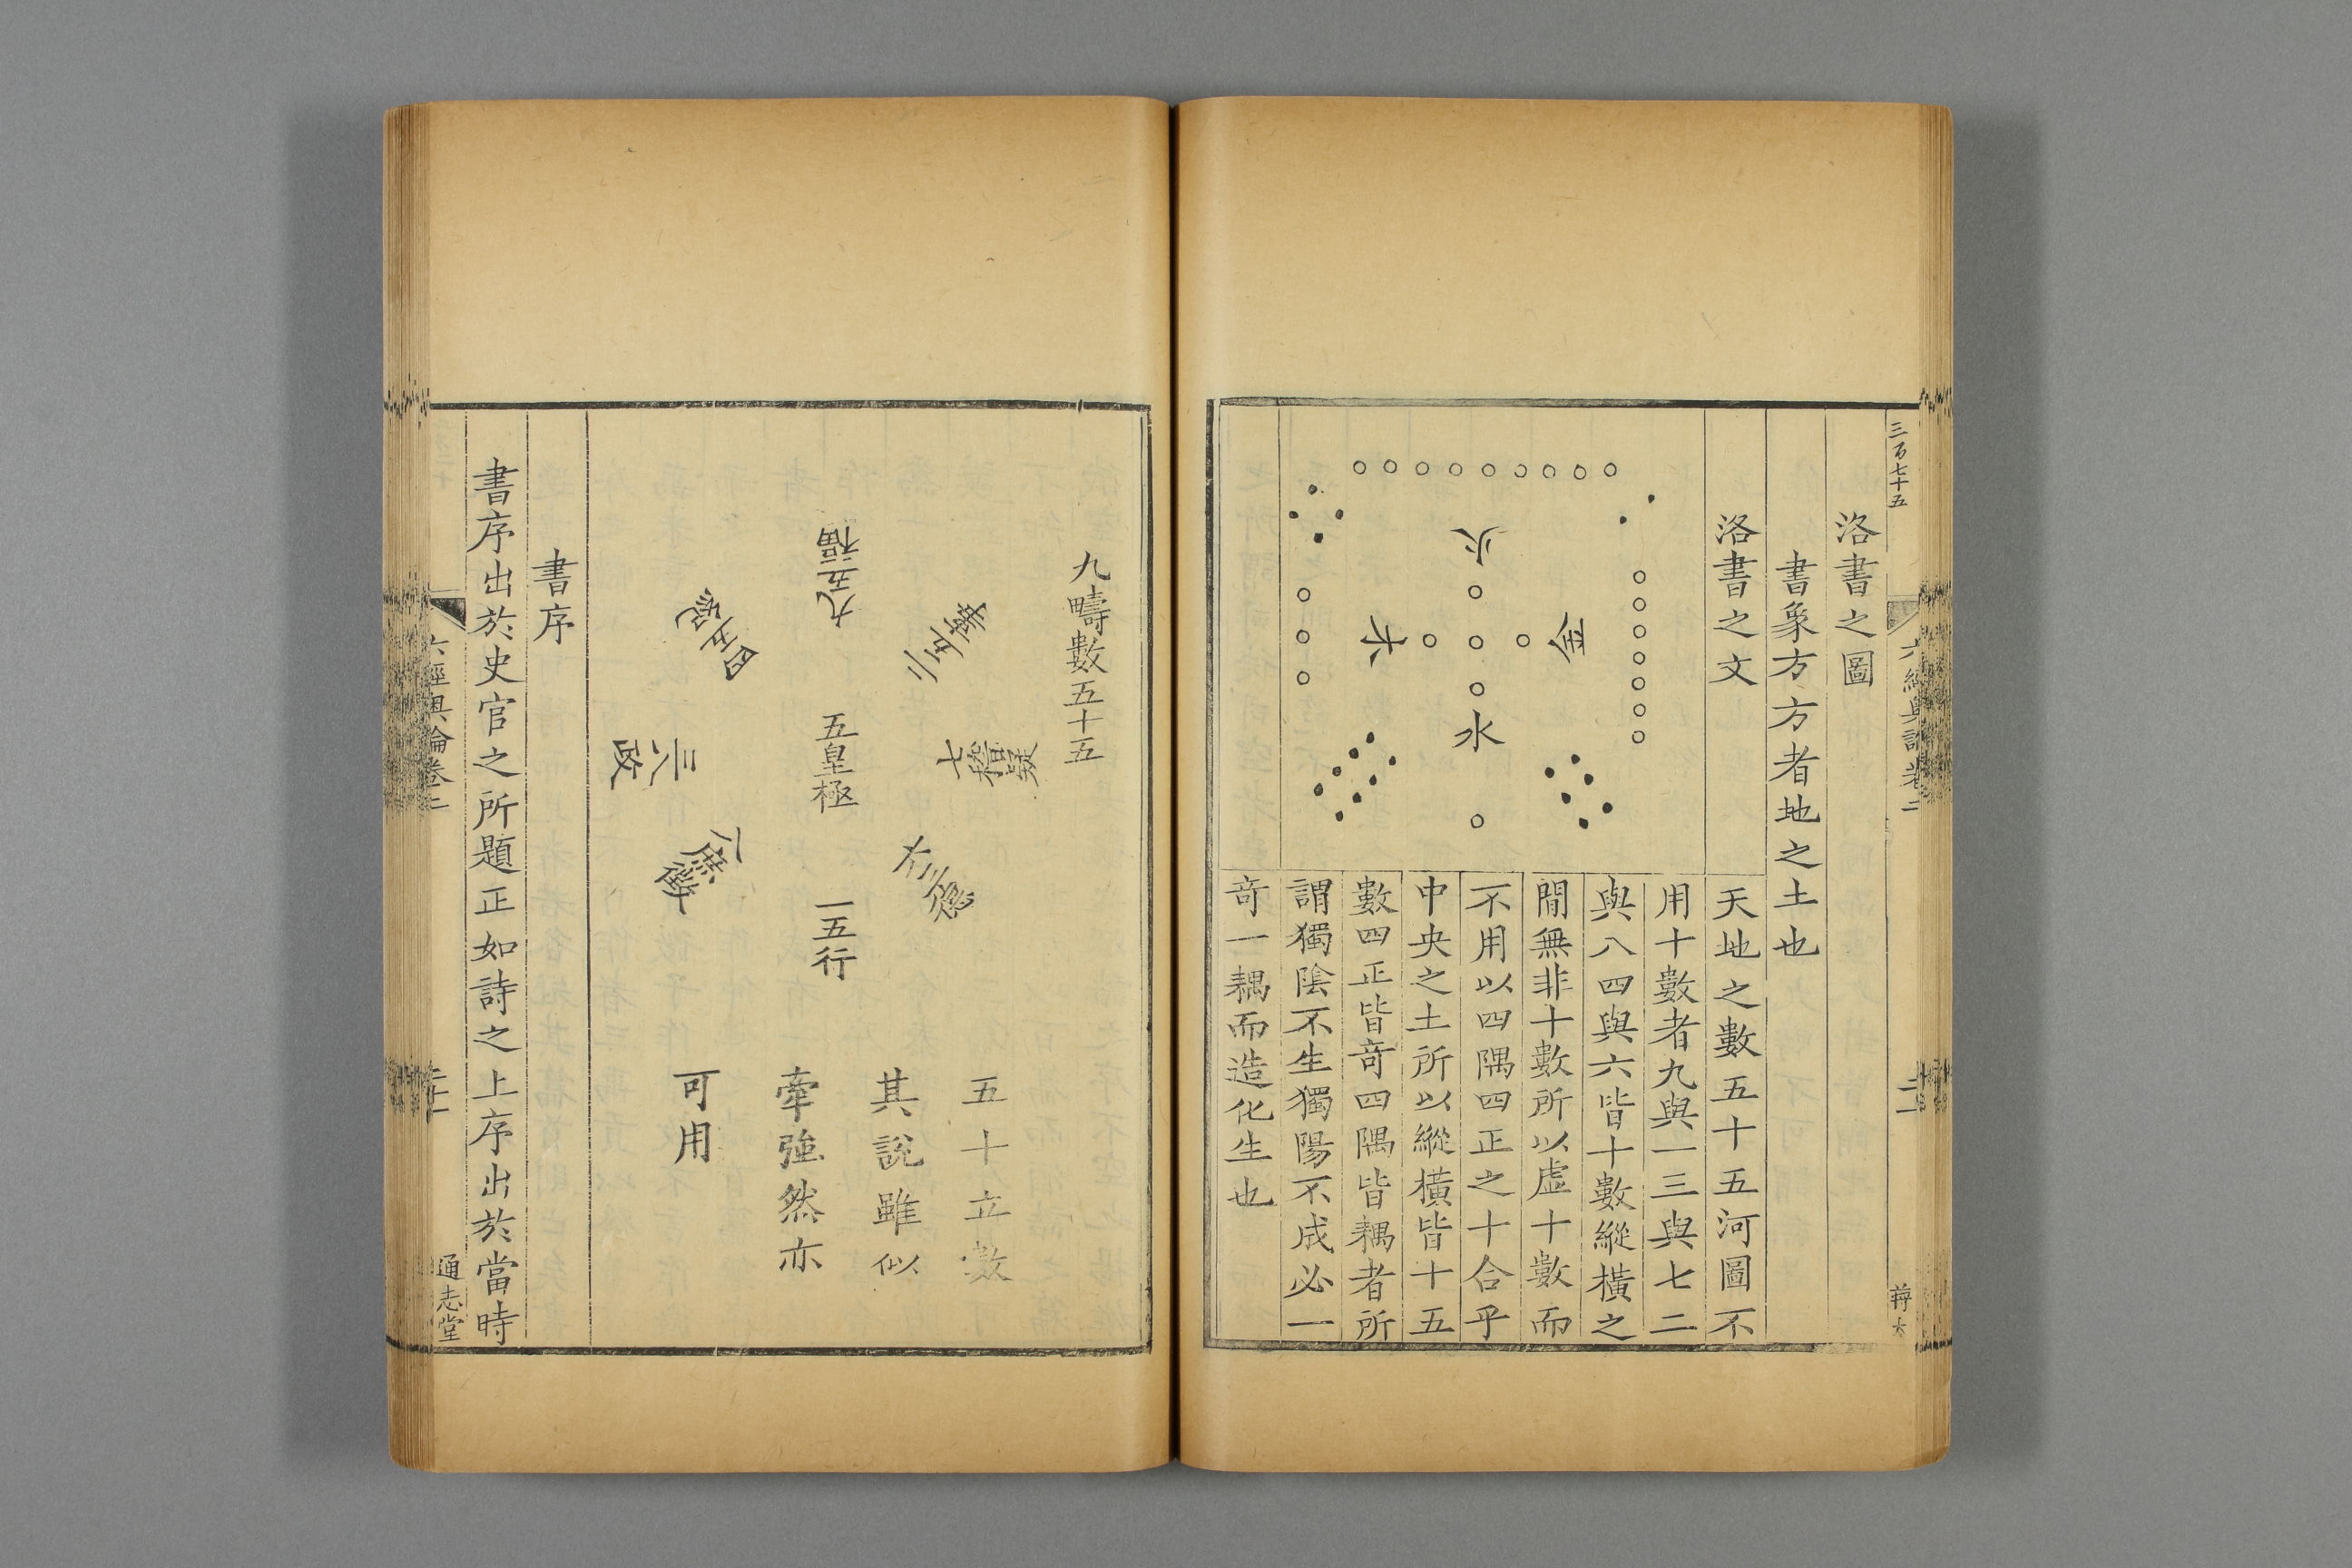 三百七十五
六經奧論卷二
蔣太
洛書之圖
書象方方者地之土也
洛書之文
火
金
木
水
天地之數五十五河圖不
用十數者九與一三與七二
與八四與六皆十數縱橫之
間無非十數所以虛十數而
不用以四隅四正之十合乎
中央之土所以縱橫皆十五
數四正皆竒四隅皆耦者所
謂獨陰不生獨陽不成必一
竒一耦而造化生也
九疇數五十五
二五事
七稽疑
六三德
九五福
五皇極
一五行
四五紀
三八政
八庶徵
五十立數
其說雖似
牽強然亦
可用
書序
書序出於史官之所題正如詩之上序出於當時
六經奧論卷二
通志堂